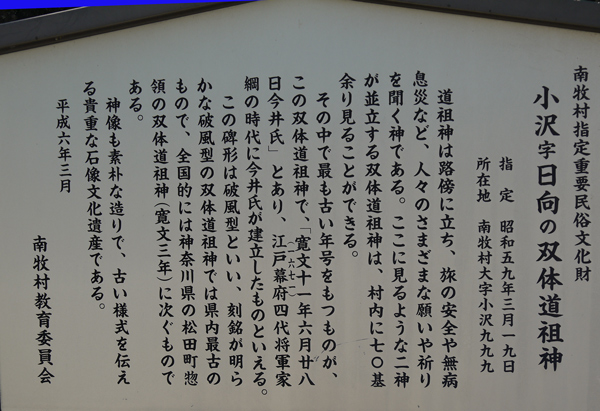 南牧村指定重要民俗文化財
小沢字日向の双体道祖神
指定 昭和五九年三月一九日
所在地 南牧村大字小沢九九九
道祖神は路傍に立ち、旅の安全や無病
息災など、人々のさまざまな願いや祈り
を聞く神である。ここに見るような二神
が並立する双体道祖神は、村内に七〇基
余り見ることができる。
その中で最も古い年号をもつものが、
この双体道祖神で、「寛文十一年六月廿八
(一六七一)
日今井氏」とあり、江戸幕府四代将軍家
綱の時代に今井氏が建立したものといえる。
この碑形は破風型といい、刻銘が明ら
かな破風型の双体道祖神では県内最古の
もので、全国的には神奈川県の松田町惣
領の双体道祖神(寛文三年)に次ぐもので
ある。
神像も素朴な造りで、古い様式を伝え
る貴重な石像文化遺産である。
平成六年三月
南牧村教育委員会